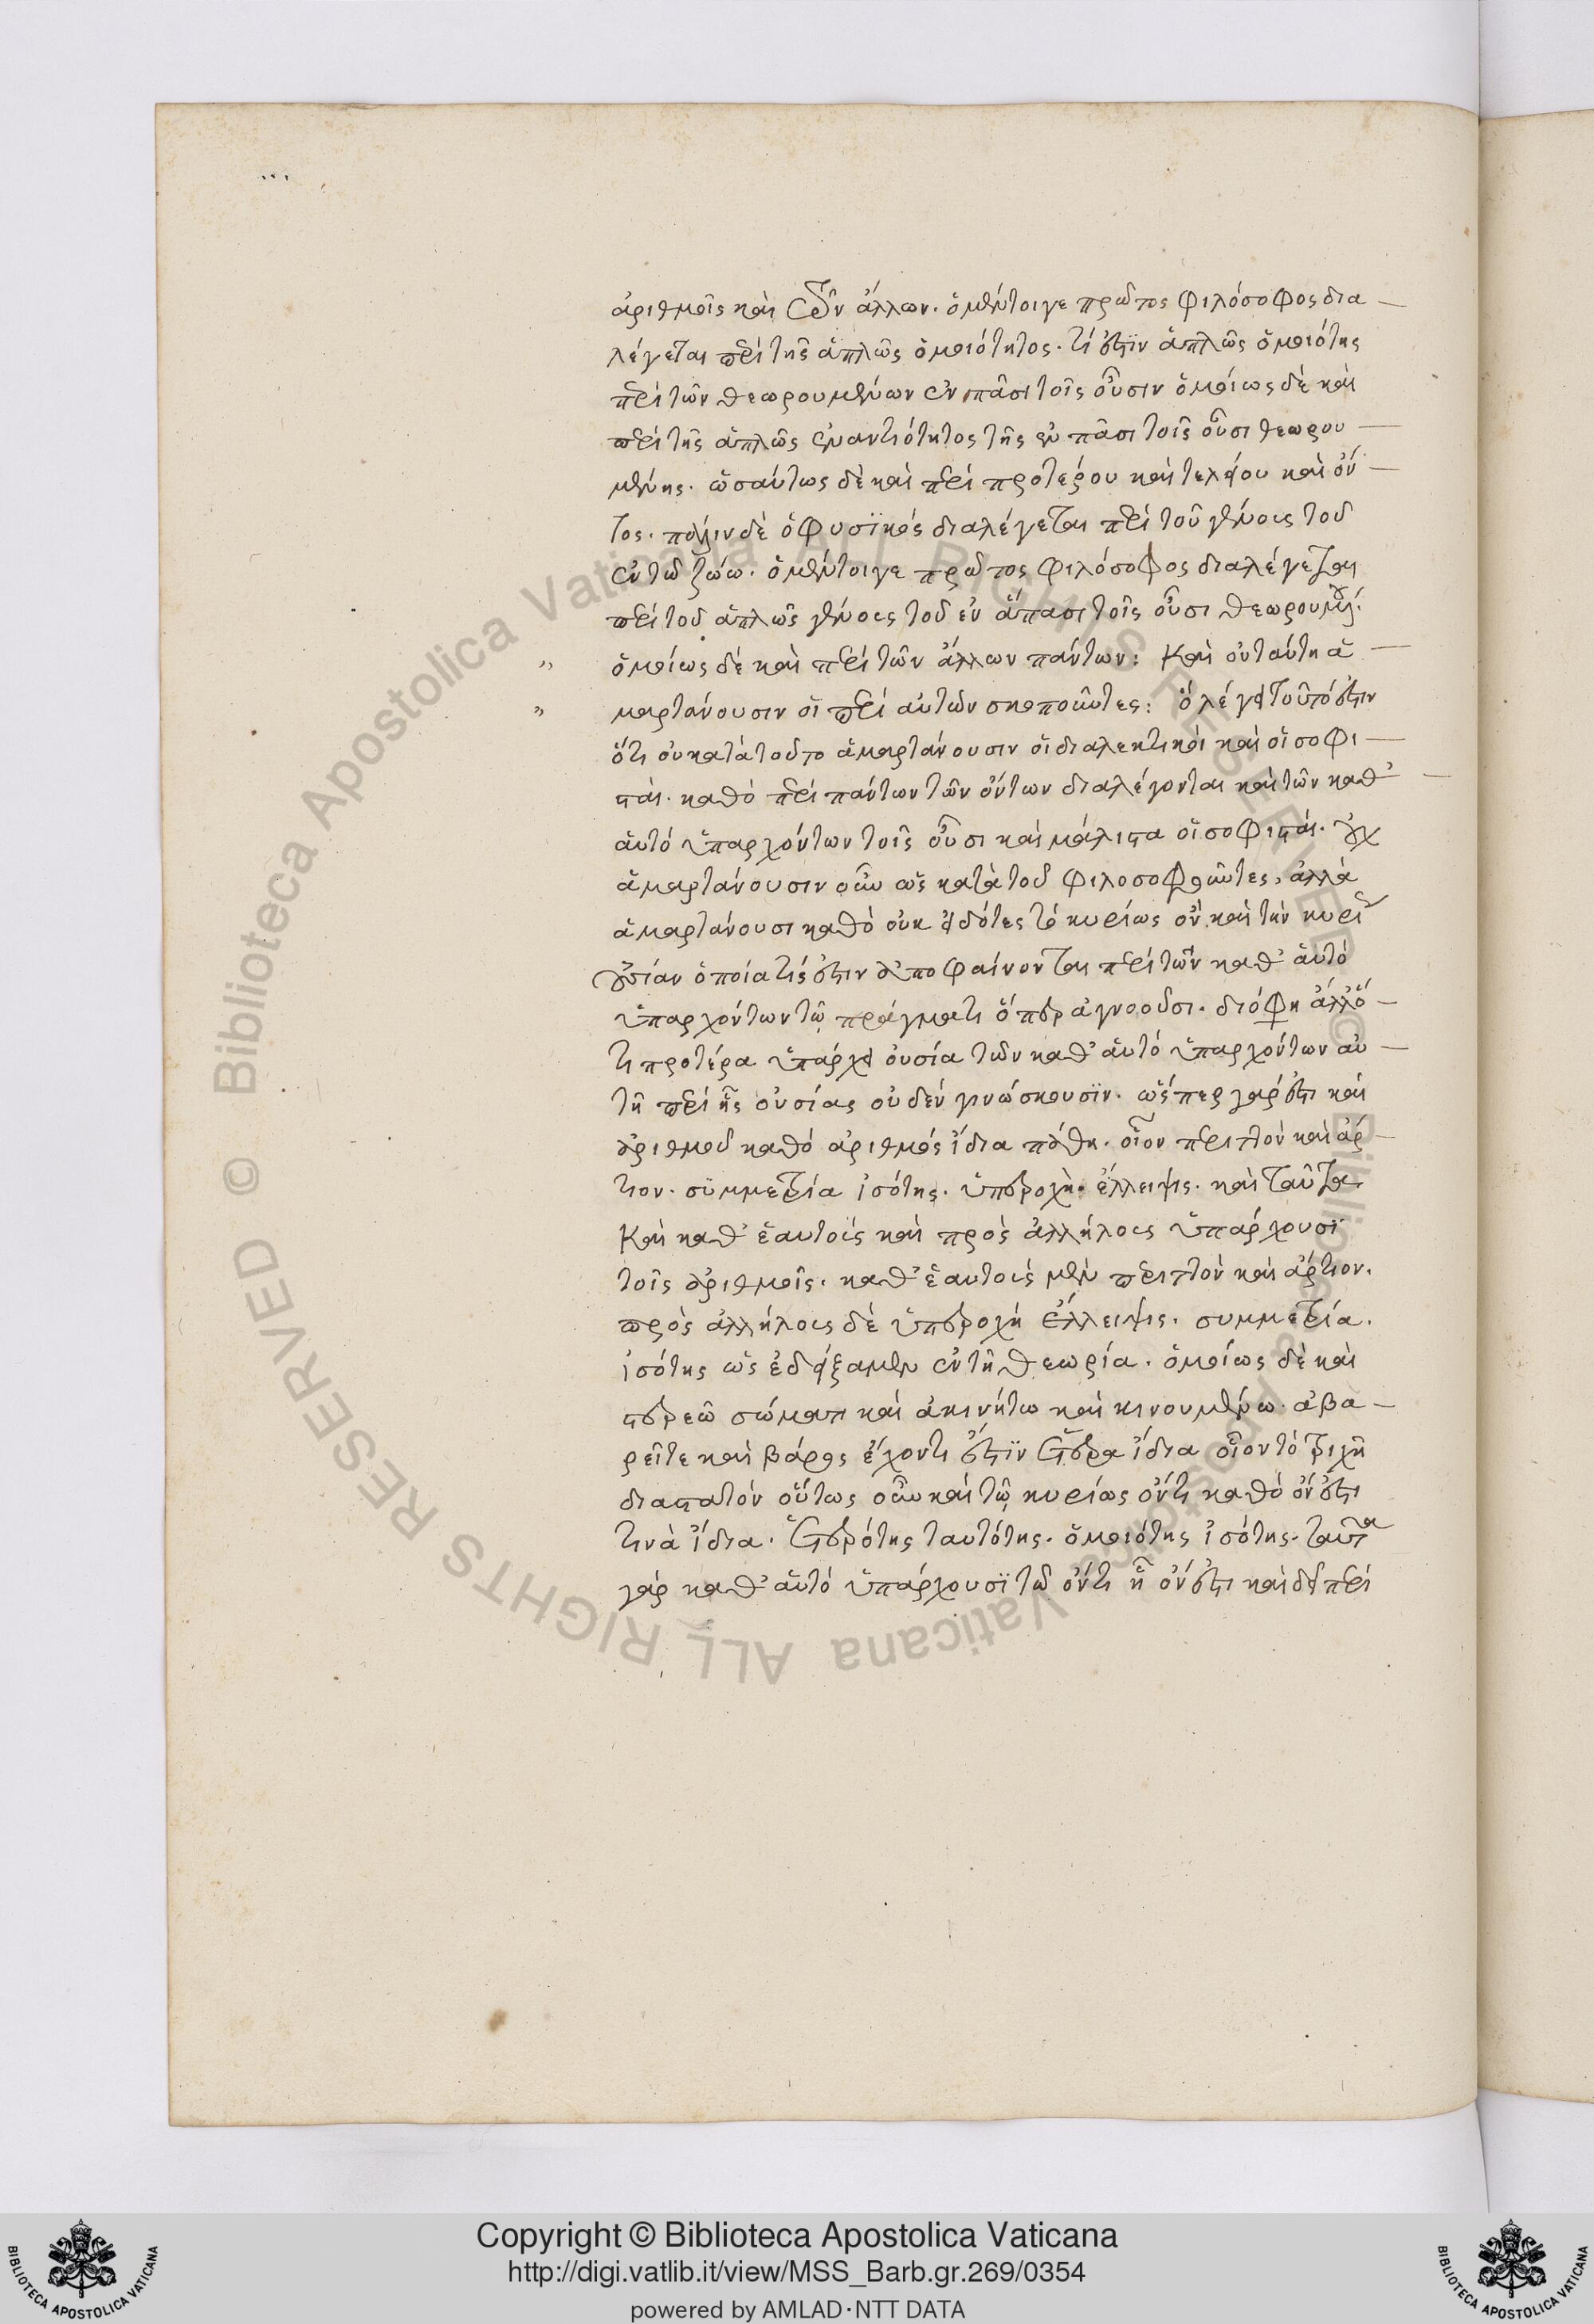 ἀριθμοῖς καὶ τῶν ἄλλων. ὁ μέντοιγε πρῶτος φιλόσοφος δια
λέγεται περὶ τῆς ἁπλῶς ὁμοιότητος. τί ἐστιν ἁπλῶς ὁμοιότης
περὶ τῶν θεωρουμένων ἐν πᾶσι τοῖς οὖσιν ὁμοίως δὲ καὶ
περὶ τῆς ἁπλῶς ἐναντιότητος τῆς ἐν πᾶσι τοῖς οὖσι θεωρου
μένης. ὡσαύτως δὲ καὶ περὶ προτέρου καὶ τελείου καὶ ὄν
τος. πάλιν δὲ ὁ φυσικὸς διαλέγεται περὶ τοῦ γένους τοῦ
ἐν τῶ ζώω. ὁ μέντοιγε πρῶτος φιλόσοφος διαλέγεται
περὶ τοῦ ἁπλῶς γένους τοῦ ἐν ἅπασι τοῖς οὖσι θεωρουμέν.
ὁμοίως δὲ καὶ περὶ τῶν ἄλλων πάντων: Καὶ οὐ ταύτη ἁ
μαρτάνουσιν οἱ περὶ αὐτῶν σκοποῦντες: ὃ λέγει τοῦτό ἐστιν
ὅτι οὐ κατὰ τοῦτο ἁμαρτάνουσιν οἱ διαλεκτικοὶ καὶ οἱ σοφι
σταί. καθὸ περὶ πάντων τῶν ὄντων διαλέγονται καὶ τῶν καθ'
αὑτὸ ὑπαρχόντων τοῖς οὖσι καὶ μάλιστα οἱ σοφισταί. οὐχ
ἁμαρτάνουσιν οὖν ὡς κατὰ τοῦ φιλοσοφοῦντες, ἀλλὰ
ἁμαρτάνουσι καθὸ οὐκ εἰδότες τὸ κυρίως ὂν καὶ τὴν κυρί
οὐσίαν ὁποία τίς ἐστιν ἀποφαίνονται περὶ τῶν καθ' αὑτὸ
ὑπαρχόντων τῶ πράγματι ὅπερ ἀγνοοῦσι. διό φη ἀλλ' ὅ
τι προτέρα ὑπάρχει οὐσία τῶν καθ' αὑτὸ ὑπαρχόντων αὐ
τῆ περὶ ἧς οὐσίας οὐδὲν γινώσκουσιν. ὥσπερ γάρ ἐστι καὶ
ἀριθμοῦ καθὸ ἀριθμὸς ἴδια πάθη. οἷον περιττὸν καὶ ἄρ
τιον. συμμετρία ἰσότης. ὑπεροχὴ. ἔλλειψις. καὶ ταῦτα
καὶ καθ' ἑαυτοὺς καὶ πρὸς ἀλλήλους ὑπάρχουσι
τοῖς ἀριθμοῖς. καθ' ἑαυτοὺς μὲν περιττὸν καὶ ἄρτιον.
πρὸς ἀλλήλους δὲ ὑπεροχὴ ἔλλειψις. συμμετρία.
ἰσότης ὡς ἐδείξαμεν ἐν τῆ θεωρία. ὁμοίως δὲ καὶ
στερεῶ σώματι καὶ ἀκινήτω καὶ κινουμένω. ἀβα
ρεῖ τε καὶ βάρος ἔχοντι ἐστὶν ἕτερα ἴδια οἷον τὸ τριχῆ
διαστατόν οὕτως οὖν καὶ τῶ κυρίως ὄντι καθὸ ὄν ἐστι
τινὰ ἴδια. ἑτερότης ταυτότης. ὁμοιότης ἰσότης. ταῦτα
γὰρ καθ' αὑτὸ ὑπάρχουσι τῶ ὄντι ἧ ὄν ἐστι καὶ δεῖ περὶ
Copyright © Biblioteca Apostolica Vaticana
http://digi.vatlib.it/view/MSS_Barb.gr.269/0354
powered by AMLAD·NTT DATA